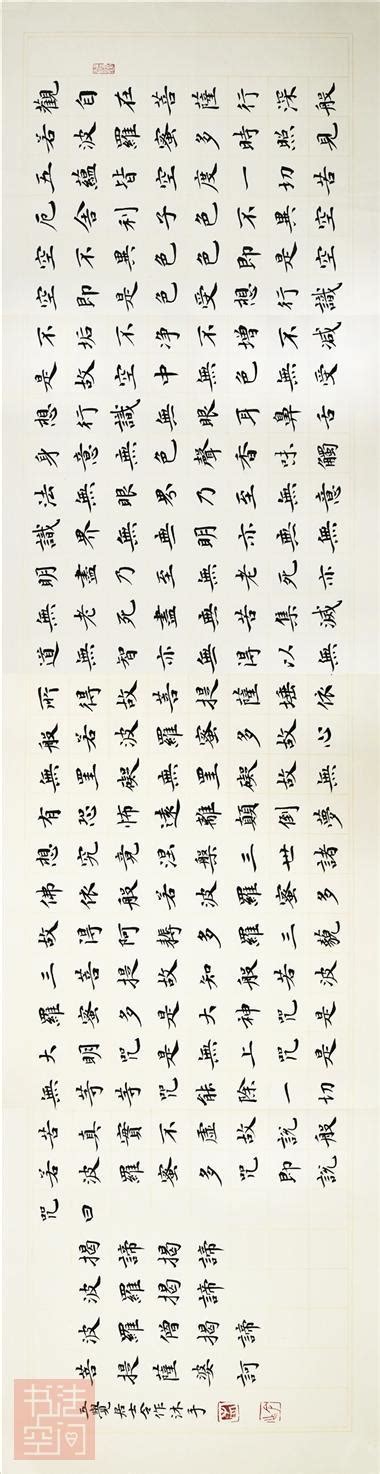 觀自在菩薩行深般
若波羅蜜多時照見
五蘊皆空度一切苦
厄舍利子色不異空
空不異色色即是空
空即是色受想行識
不垢不淨不增不減
是故空中無色無受
想行識無眼耳鼻舌
身意無色聲香味觸
法無眼界乃至無意
識界無無明亦無無
明盡乃至無老死亦
無老死盡無苦集滅
道無智亦無得以無
所得故菩提薩埵依
般若波羅蜜多故心
無罣礙無罣礙故無
有恐怖遠離顛倒夢
想究竟涅槃三世諸
佛依般若波羅蜜多
故得阿耨多羅三藐
三菩提故知般若波
羅蜜多是大神咒是
大明咒是無上咒是
無等等咒能除一切
苦真實不虛故說般
若波羅蜜多咒即說
咒曰
揭諦揭諦
波羅揭諦
波羅僧揭諦
菩提薩婆訶
五覺居士令作沐手
书法空间